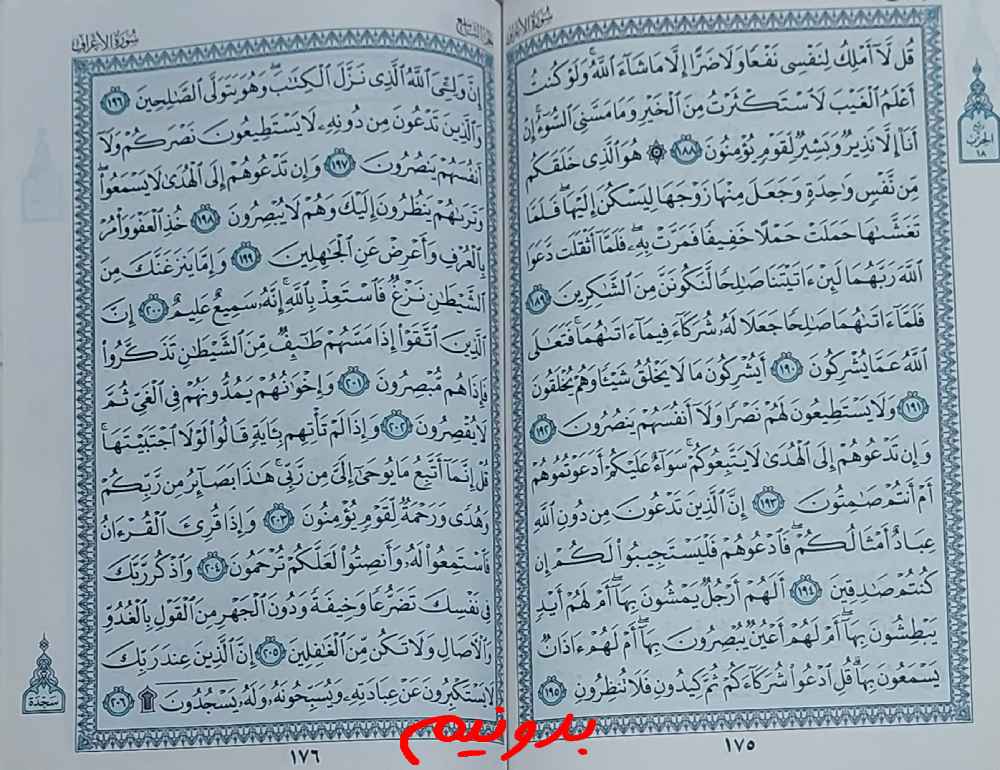 سورة الأعراف
قُل لَّآ أَمۡلِكُ لِنَفۡسِي نَفۡعٗا وَلَا ضَرًّا إِلَّا مَا شَآءَ ٱللَّهُۚ وَلَوۡ كُنتُ
أَعۡلَمُ ٱلۡغَيۡبَ لَٱسۡتَكۡثَرۡتُ مِنَ ٱلۡخَيۡرِ وَمَا مَسَّنِيَ ٱلسُّوٓءُۚ إِنۡ
أَنَا۠ إِلَّا نَذِيرٞ وَبَشِيرٞ لِّقَوۡمٖ يُؤۡمِنُونَ ١٨٨ ۞ هُوَ ٱلَّذِي خَلَقَكُم
مِّن نَّفۡسٖ وَٰحِدَةٖ وَجَعَلَ مِنۡهَا زَوۡجَهَا لِيَسۡكُنَ إِلَيۡهَاۖ فَلَمَّا
تَغَشَّىٰهَا حَمَلَتۡ حَمۡلًا خَفِيفٗا فَمَرَّتۡ بِهِۦۖ فَلَمَّآ أَثۡقَلَت دَّعَوَا
ٱللَّهَ رَبَّهُمَا لَئِنۡ ءَاتَيۡتَنَا صَٰلِحٗا لَّنَكُونَنَّ مِنَ ٱلشَّٰكِرِينَ ١٨٩
فَلَمَّآ ءَاتَىٰهُمَا صَٰلِحٗا جَعَلَا لَهُۥ شُرَكَآءَ فِيمَآ ءَاتَىٰهُمَاۚ فَتَعَٰلَى
ٱللَّهُ عَمَّا يُشۡرِكُونَ ١٩٠ أَيُشۡرِكُونَ مَا لَا يَخۡلُقُ شَيۡـٔٗا وَهُمۡ يُخۡلَقُونَ
١٩١ وَلَا يَسۡتَطِيعُونَ لَهُمۡ نَصۡرٗا وَلَآ أَنفُسَهُمۡ يَنصُرُونَ ١٩٢
وَإِن تَدۡعُوهُمۡ إِلَى ٱلۡهُدَىٰ لَا يَتَّبِعُوكُمۡۚ سَوَآءٌ عَلَيۡكُمۡ أَدَعَوۡتُمُوهُمۡ
أَمۡ أَنتُمۡ صَٰمِتُونَ ١٩٣ إِنَّ ٱلَّذِينَ تَدۡعُونَ مِن دُونِ ٱللَّهِ
عِبَادٌ أَمۡثَالُكُمۡۖ فَٱدۡعُوهُمۡ فَلۡيَسۡتَجِيبُواْ لَكُمۡ إِن
كُنتُمۡ صَٰدِقِينَ ١٩٤ أَلَهُمۡ أَرۡجُلٞ يَمۡشُونَ بِهَآۖ أَمۡ لَهُمۡ أَيۡدٖ
يَبۡطِشُونَ بِهَآۖ أَمۡ لَهُمۡ أَعۡيُنٞ يُبۡصِرُونَ بِهَآۖ أَمۡ لَهُمۡ ءَاذَانٞ
يَسۡمَعُونَ بِهَاۗ قُلِ ٱدۡعُواْ شُرَكَآءَكُمۡ ثُمَّ كِيدُونِ فَلَا تُنظِرُونِ ١٩٥
١٧٥
ربع
الحزب
١٨
سورة الأعراف
إِنَّ وَلِـِّۧيَ ٱللَّهُ ٱلَّذِي نَزَّلَ ٱلۡكِتَٰبَۖ وَهُوَ يَتَوَلَّى ٱلصَّٰلِحِينَ ١٩٦
وَٱلَّذِينَ تَدۡعُونَ مِن دُونِهِۦ لَا يَسۡتَطِيعُونَ نَصۡرَكُمۡ وَلَآ
أَنفُسَهُمۡ يَنصُرُونَ ١٩٧ وَإِن تَدۡعُوهُمۡ إِلَى ٱلۡهُدَىٰ لَا يَسۡمَعُواْۖ
وَتَرَىٰهُمۡ يَنظُرُونَ إِلَيۡكَ وَهُمۡ لَا يُبۡصِرُونَ ١٩٨ خُذِ ٱلۡعَفۡوَ وَأۡمُرۡ
بِٱلۡعُرۡفِ وَأَعۡرِضۡ عَنِ ٱلۡجَٰهِلِينَ ١٩٩ وَإِمَّا يَنزَغَنَّكَ مِنَ
ٱلشَّيۡطَٰنِ نَزۡغٞ فَٱسۡتَعِذۡ بِٱللَّهِۚ إِنَّهُۥ سَمِيعٌ عَلِيمٌ ٢٠٠ إِنَّ
ٱلَّذِينَ ٱتَّقَوۡاْ إِذَا مَسَّهُمۡ طَٰٓئِفٞ مِّنَ ٱلشَّيۡطَٰنِ تَذَكَّرُواْ
فَإِذَا هُم مُّبۡصِرُونَ ٢٠١ وَإِخۡوَٰنُهُمۡ يَمُدُّونَهُمۡ فِي ٱلۡغَيِّ ثُمَّ
لَا يُقۡصِرُونَ ٢٠٢ وَإِذَا لَمۡ تَأۡتِهِم بِـَٔايَةٖ قَالُواْ لَوۡلَا ٱجۡتَبَيۡتَهَاۚ
قُلۡ إِنَّمَآ أَتَّبِعُ مَا يُوحَىٰٓ إِلَيَّ مِن رَّبِّيۚ هَٰذَا بَصَآئِرُ مِن رَّبِّكُمۡ
وَهُدٗى وَرَحۡمَةٞ لِّقَوۡمٖ يُؤۡمِنُونَ ٢٠٣ وَإِذَا قُرِئَ ٱلۡقُرۡءَانُ
فَٱسۡتَمِعُواْ لَهُۥ وَأَنصِتُواْ لَعَلَّكُمۡ تُرۡحَمُونَ ٢٠٤ وَٱذۡكُر رَّبَّكَ
فِي نَفۡسِكَ تَضَرُّعٗا وَخِيفَةٗ وَدُونَ ٱلۡجَهۡرِ مِنَ ٱلۡقَوۡلِ بِٱلۡغُدُوِّ
وَٱلۡأٓصَالِ وَلَا تَكُن مِّنَ ٱلۡغَٰفِلِينَ ٢٠٥ إِنَّ ٱلَّذِينَ عِندَ رَبِّكَ
لَا يَسۡتَكۡبِرُونَ عَنۡ عِبَادَتِهِۦ وَيُسَبِّحُونَهُۥ وَلَهُۥ يَسۡجُدُونَۤ ۩ ٢٠٦
١٧٦
سجدة
بدونیم